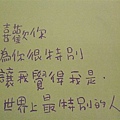 喜歡你
為你很特別
讓我覺得我是.
世界上最特別的人